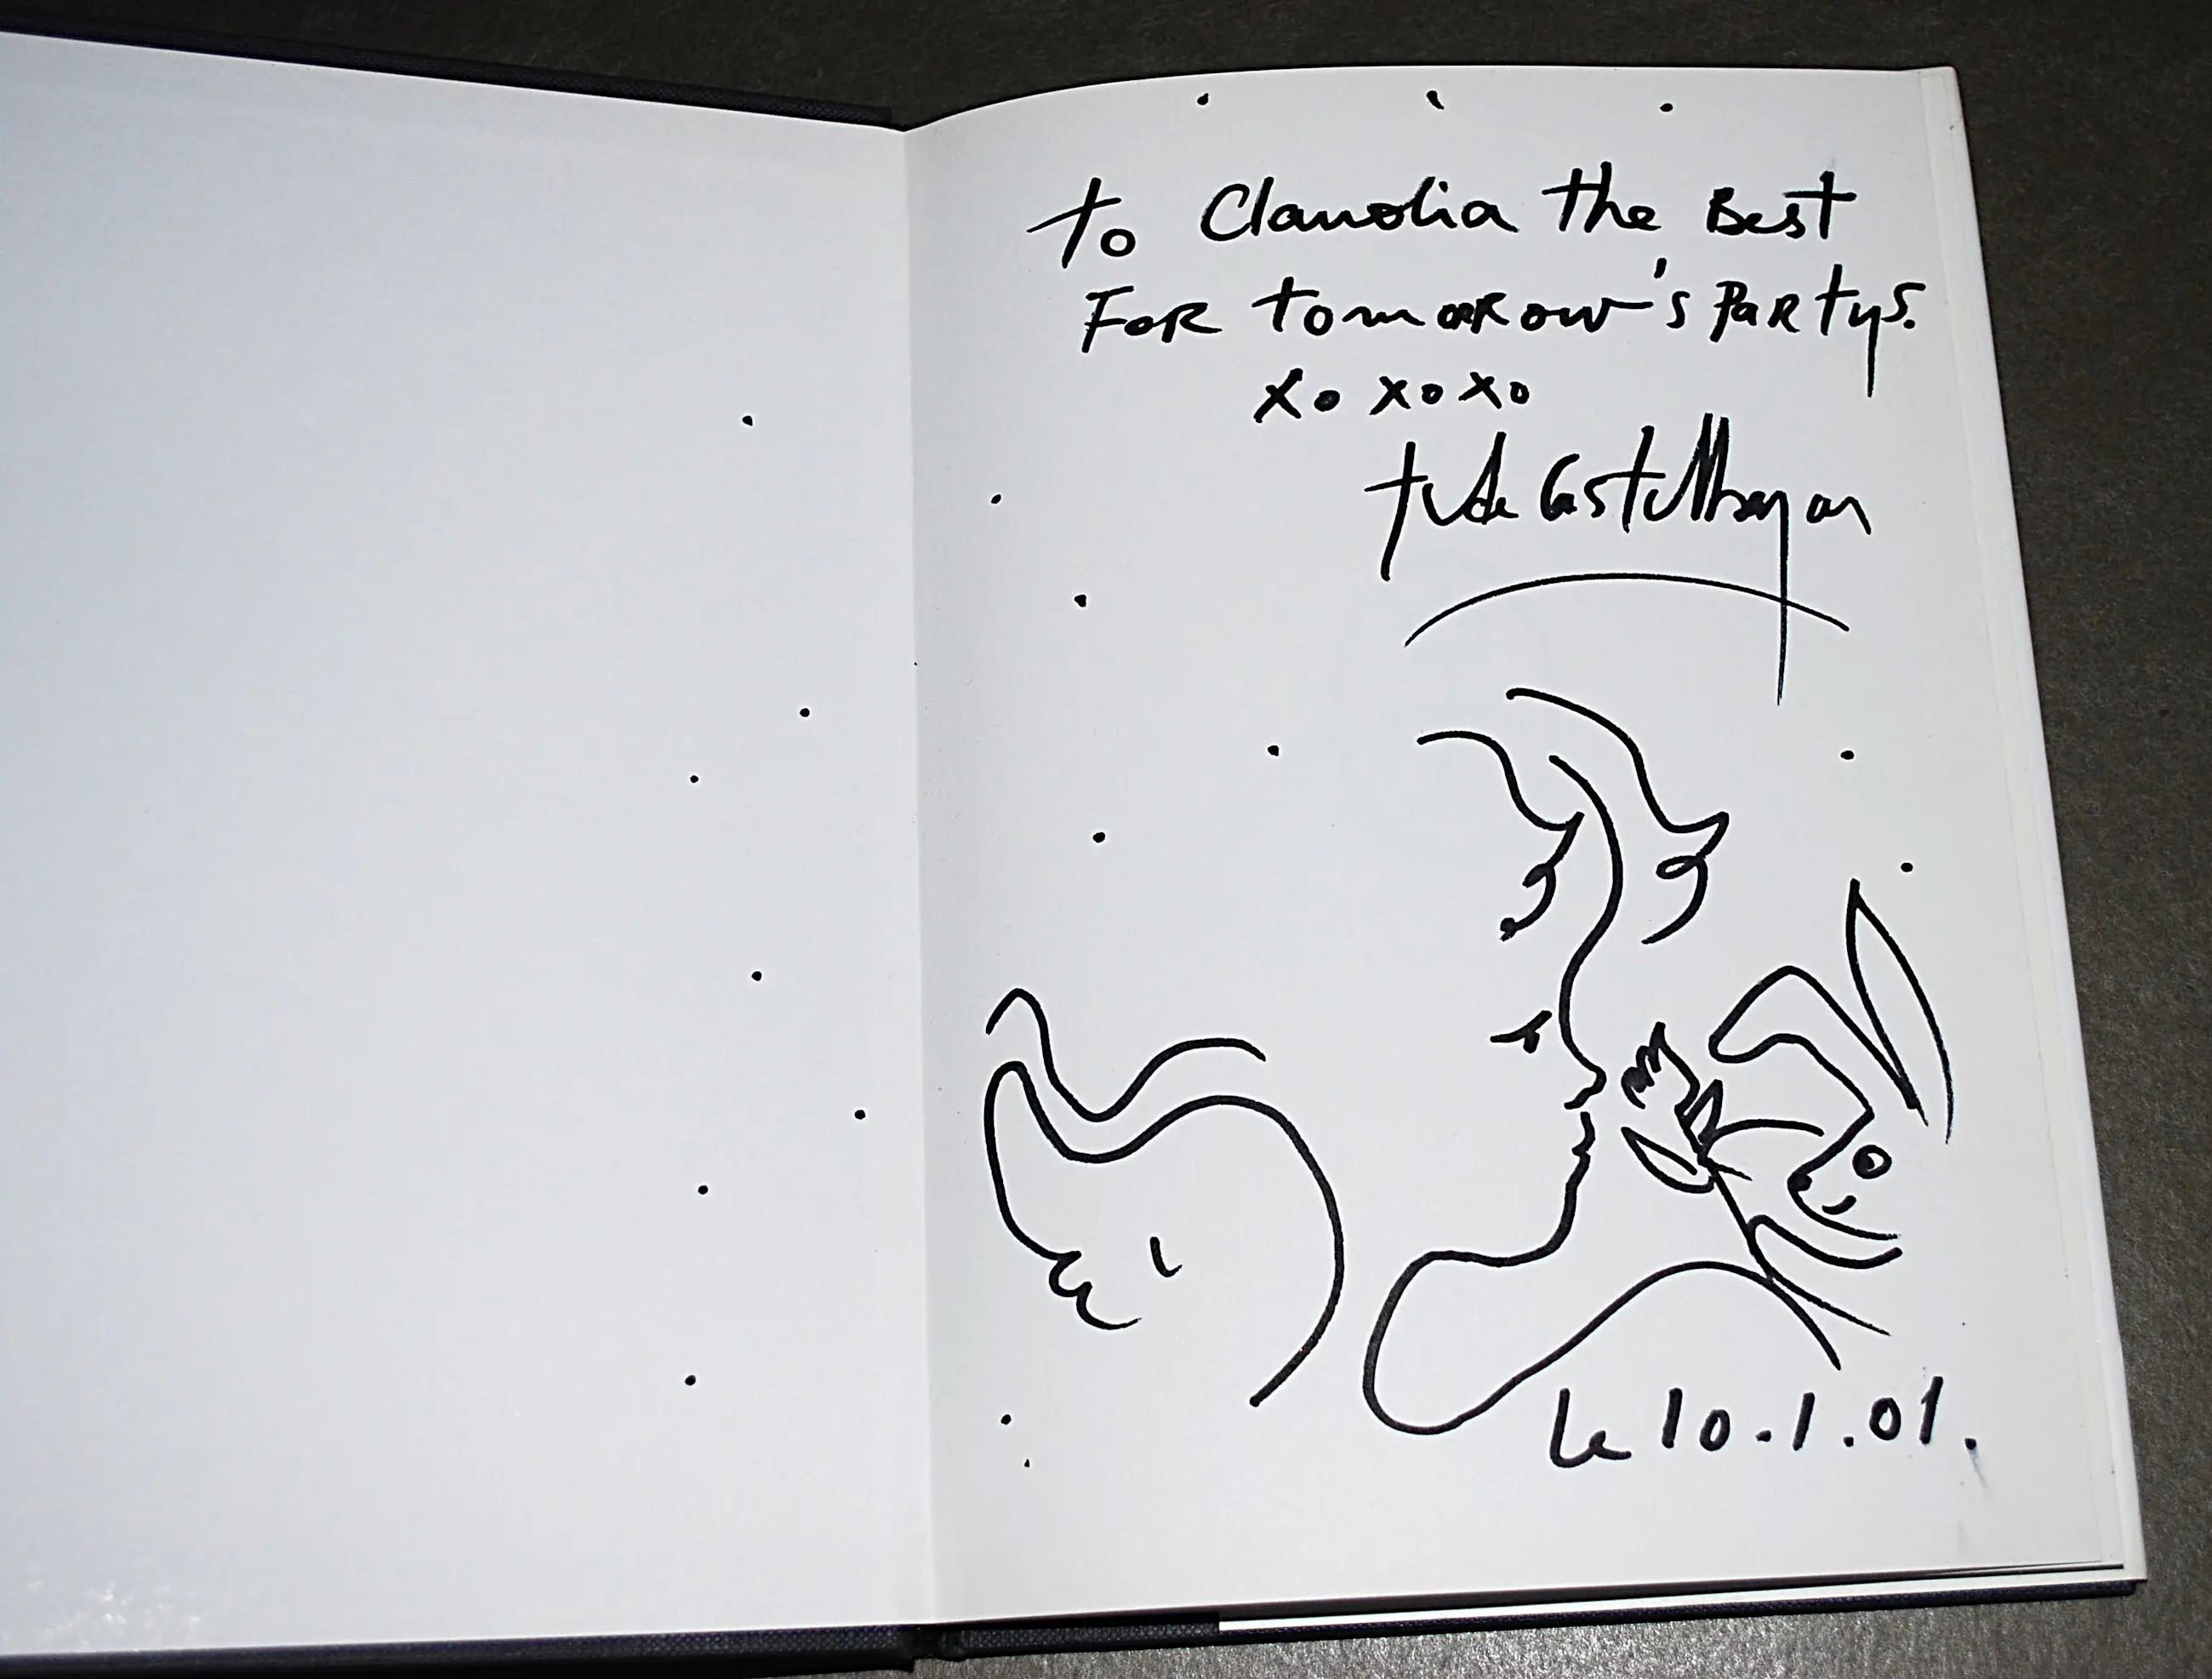 to Claudia the Best
FOR tomorrow's Partys.
xo xo xo
de Castelbajac
le 10.1.01.